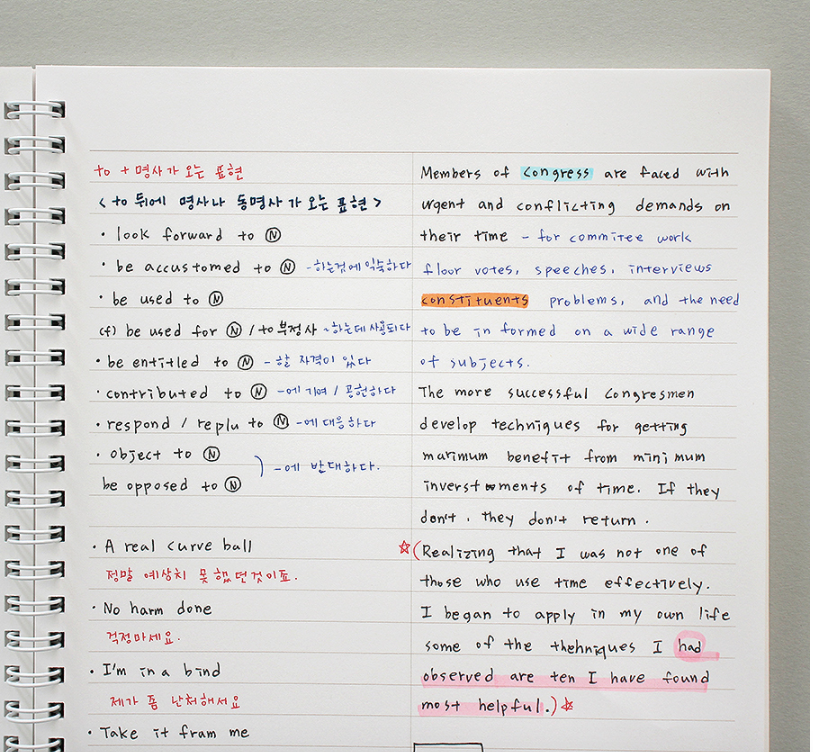 to + 명사가 오는 표현
< to 뒤에 명사나 동명사가 오는 표현 >
· look forward to Ⓝ
· be accustomed to Ⓝ -하는것에 익숙하다
· be used to Ⓝ
(cf) be used for Ⓝ / to 부정사 -하는데 사용되다
· be entitled to Ⓝ - 할 자격이 있다
· contributed to Ⓝ -에 기여 / 공헌하다
· respond / replu to Ⓝ -에 대응하다
· object to Ⓝ
be opposed to Ⓝ
) -에 반대하다.
· A real curve ball
정말 예상치 못했던것이죠.
· No harm done
걱정마세요.
· I'm in a bind
제가 좀 난처해서요
· Take it fram me
Members of congress are faced with
urgent and conflicting demands on
their time - for commitee work
floor votes, speeches, interviews
constituents problems, and the need
to be in formed on a wide range
of subjects.
The more successful Congresmen
develop techniques for getting
marimum benefit from minimum
inverstments of time. If they
don't, they don't return.
☆(Realizing that I was not one of
those who use time effectively.
I began to apply in my own life
some of the thehniques I had
observed are ten I have found
most helpful.)☆